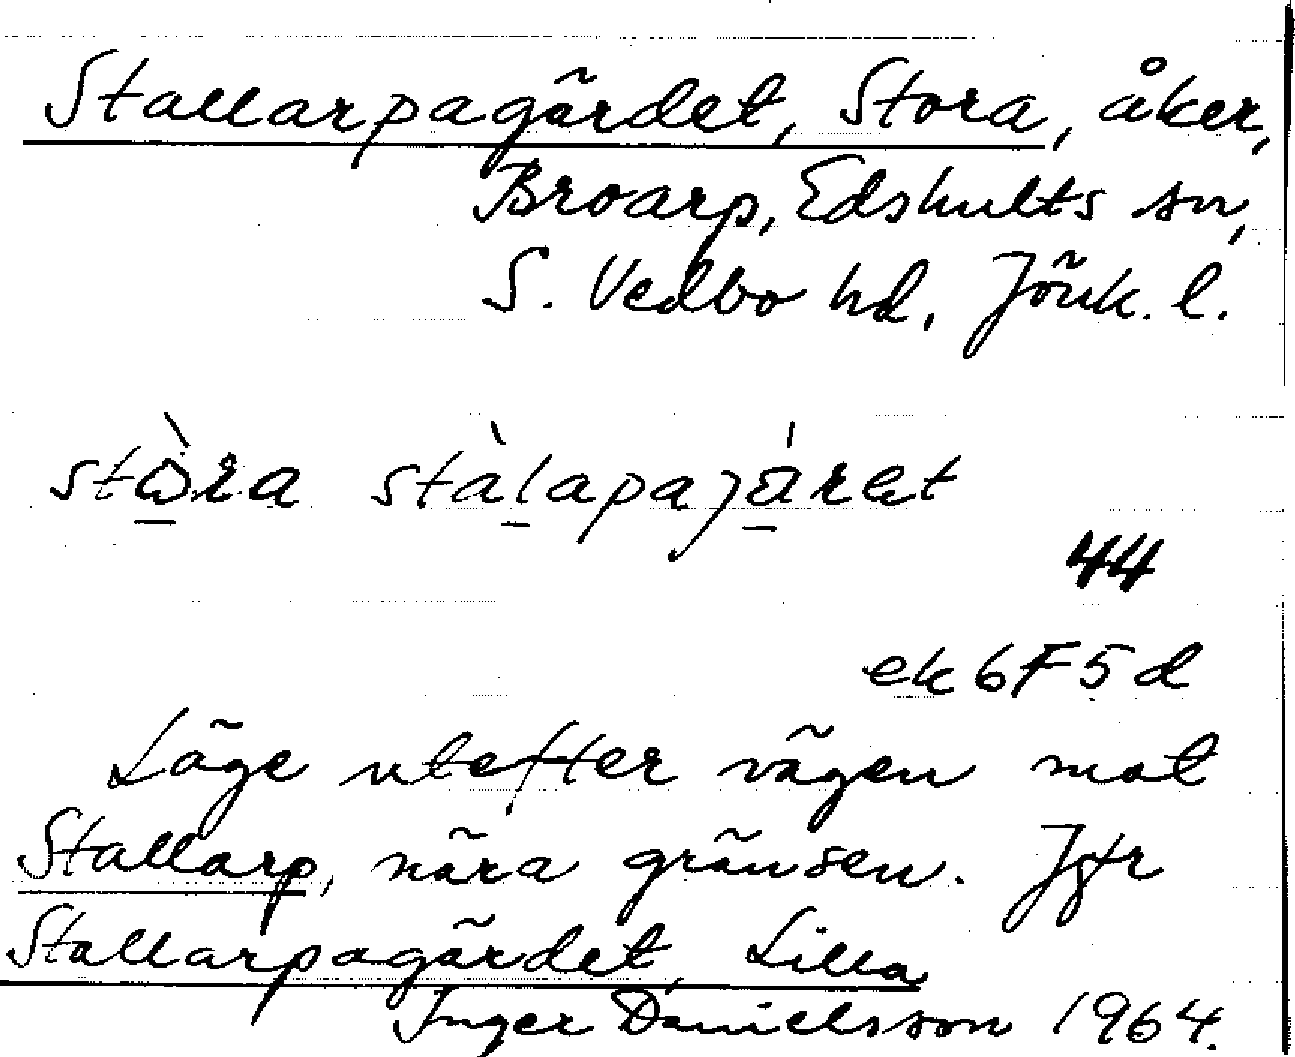 Stallarpagärdet, Stora, åker,
Broarp, Edshults sn,
S. Vedbo hd, Jönk. l.
stòra stàlapajäret
44
ek 6F5d
Läge utefter vägen mot
Stallarp, nära gränsen. Jfr
Stallarpagärdet, Lilla
Inger Danielsson 1964.